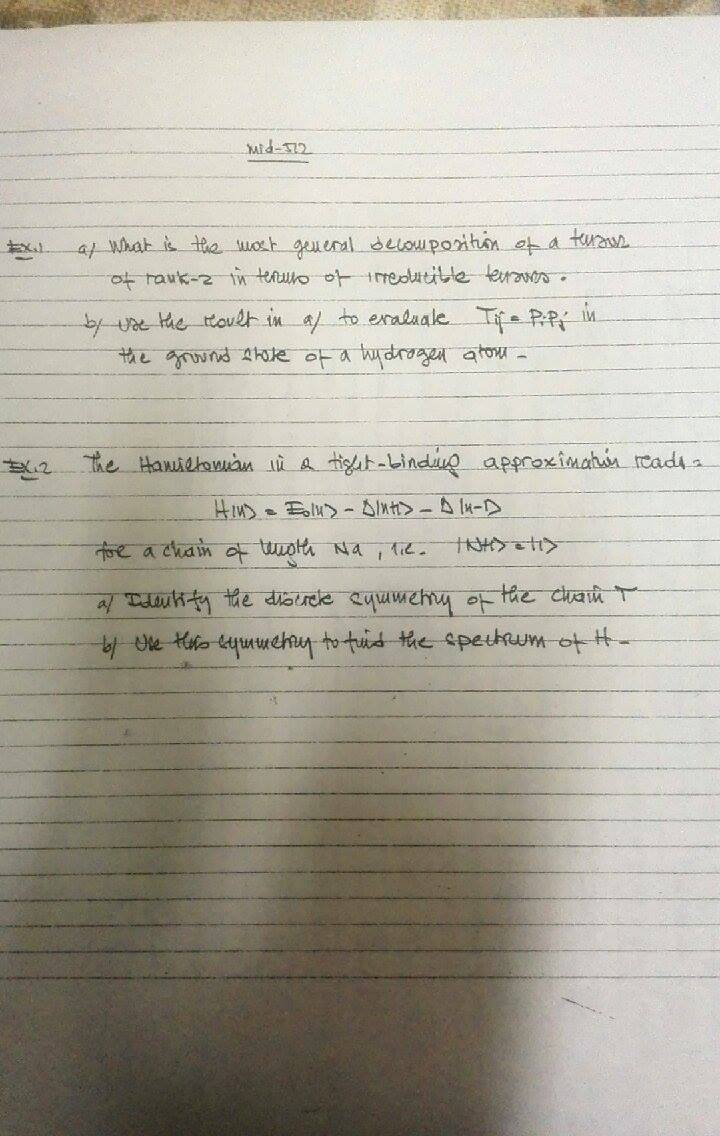 Mid-512
Ex.1 a/ What is the most general decomposition of a tensor
of rank-2 in terms of irreducible tensors.
b/ Use the result in a/ to evaluate Tij = PiPj in
the ground state of a hydrogen atom -
Ex.2 The Hamiltonian in a tight-binding approximation reads =
H|n> = E₀|n> - Δ|n+1> - Δ|n-1>
for a chain of length Na, i.e. |N+1> = |1>
a/ Identify the discrete symmetry of the chain T
b/ Use this symmetry to find the spectrum of H -